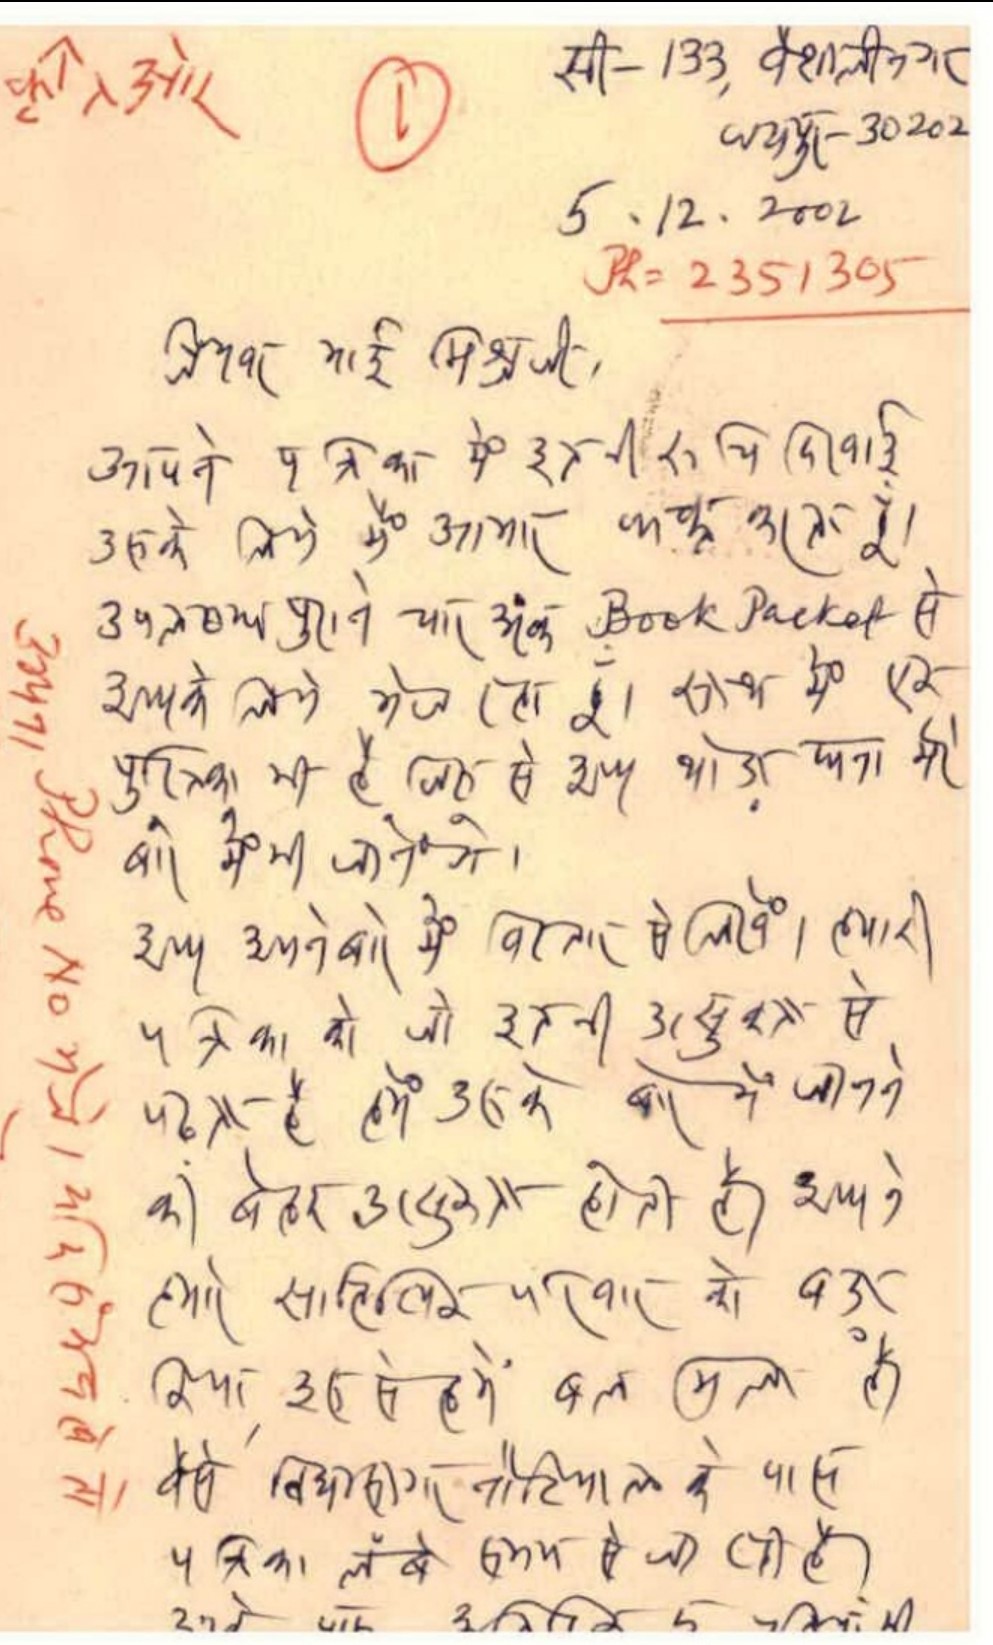 कृ
ओर
1
सी- 133, वैशालीनगर
जयपुर- 30202
5.12.2002
Ph = 2351305
प्रियवर भाई मिश्र जी,
आपने पत्रिका में इतनी रुचि दिखाई
उसके लिये मैं आभार व्यक्त करता हूँ।
उपलब्ध पुराने चार अंक Book Packet से
आपके लिये भेज रहा हूँ। साथ में एक
पुस्तिका भी है जिस से आप थोड़ा मेरे
बारे में भी जानेंगे।
आप अपने बारे में विस्तार से लिखें। हमारी
पत्रिका को जो इतनी उत्सुकता से
पढ़ता है हमें उसके बारे में जानने
की बेहद उत्सुकता होती है। आपने
हमारे साहित्यिक परिवार को बड़ा
किया, उस से हमें बल मिला है।
वैसे विद्यासागर नौटियाल के पास
पत्रिका लंबे समय से जा रही है।
अपना Phone No भेजें। यदि संभव हो तो।